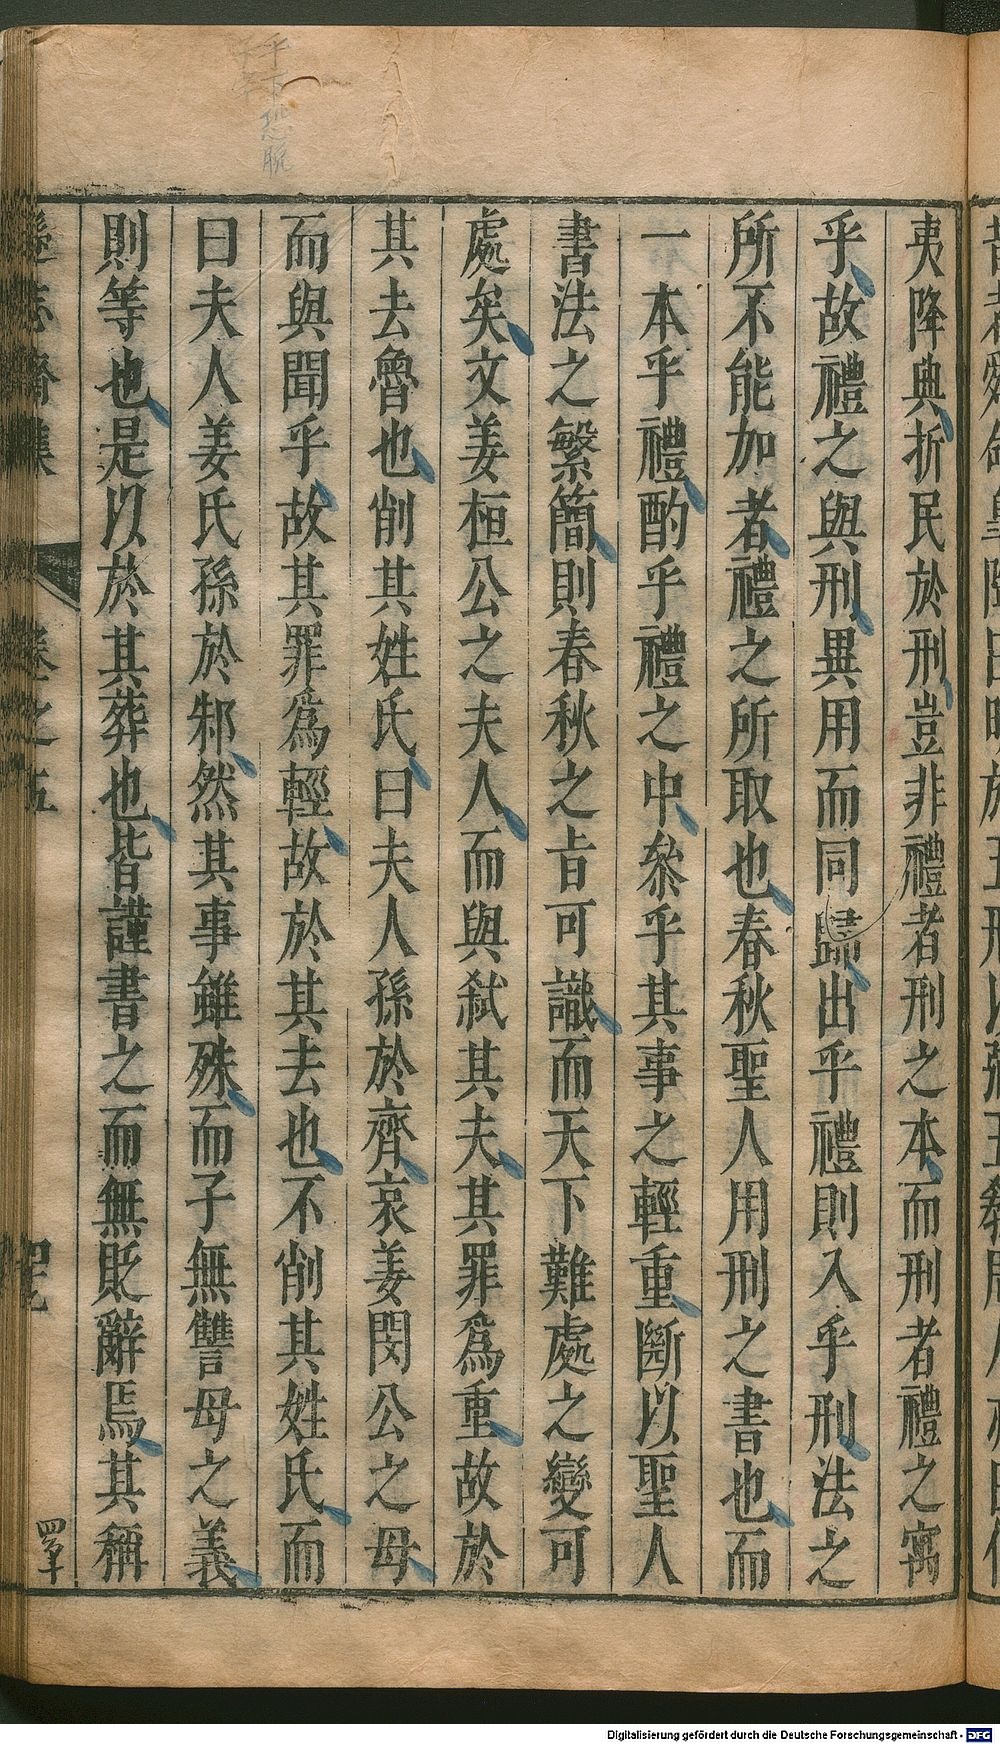 夷降典折民於刑豈非禮者刑之本而刑者禮之寓
乎故禮之與刑異用而同歸出乎禮則入乎刑法之
所不能加者禮之所取也春秋聖人用刑之書也而
一本乎禮酌乎禮之中叅乎其事之輕重斷以聖人
書法之繁簡則春秋之㫖可識而天下難處之變可
處矣文姜桓公之夫人而與弑其夫其罪爲重故於
其去魯也削其姓氏曰夫人孫於齊哀姜閔公之母
而與聞乎故其罪爲輕故於其去也不削其姓氏而
曰夫人姜氏孫於邾然其事雖殊而子無讐母之義
則等也是以於其葬也皆謹書之而無貶辭焉其稱
遜志齋集
卷之五
Digitalisierung gefördert durch die Deutsche Forschungsgemeinschaft - DFG